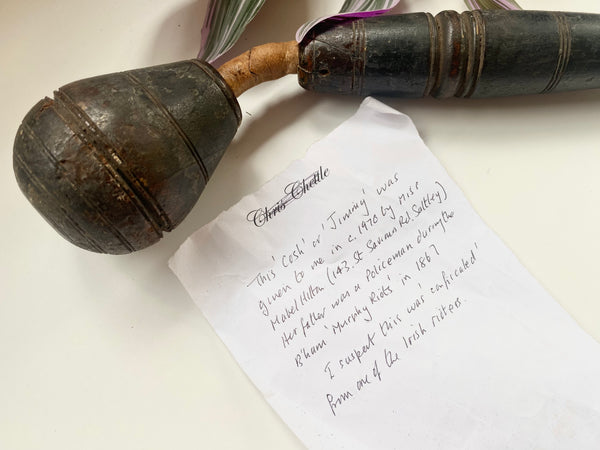 Chris Chettle
This 'Cosh' or 'Jimmy' was
given to me in c. 1970 by Miss
Mabel Hilton (143. St Saviours Rd. Saltley)
Her father was a Policeman during the
B'ham 'Murphy Riots' in 1867
I suspect this was 'conficated'
from one of the Irish rioters.